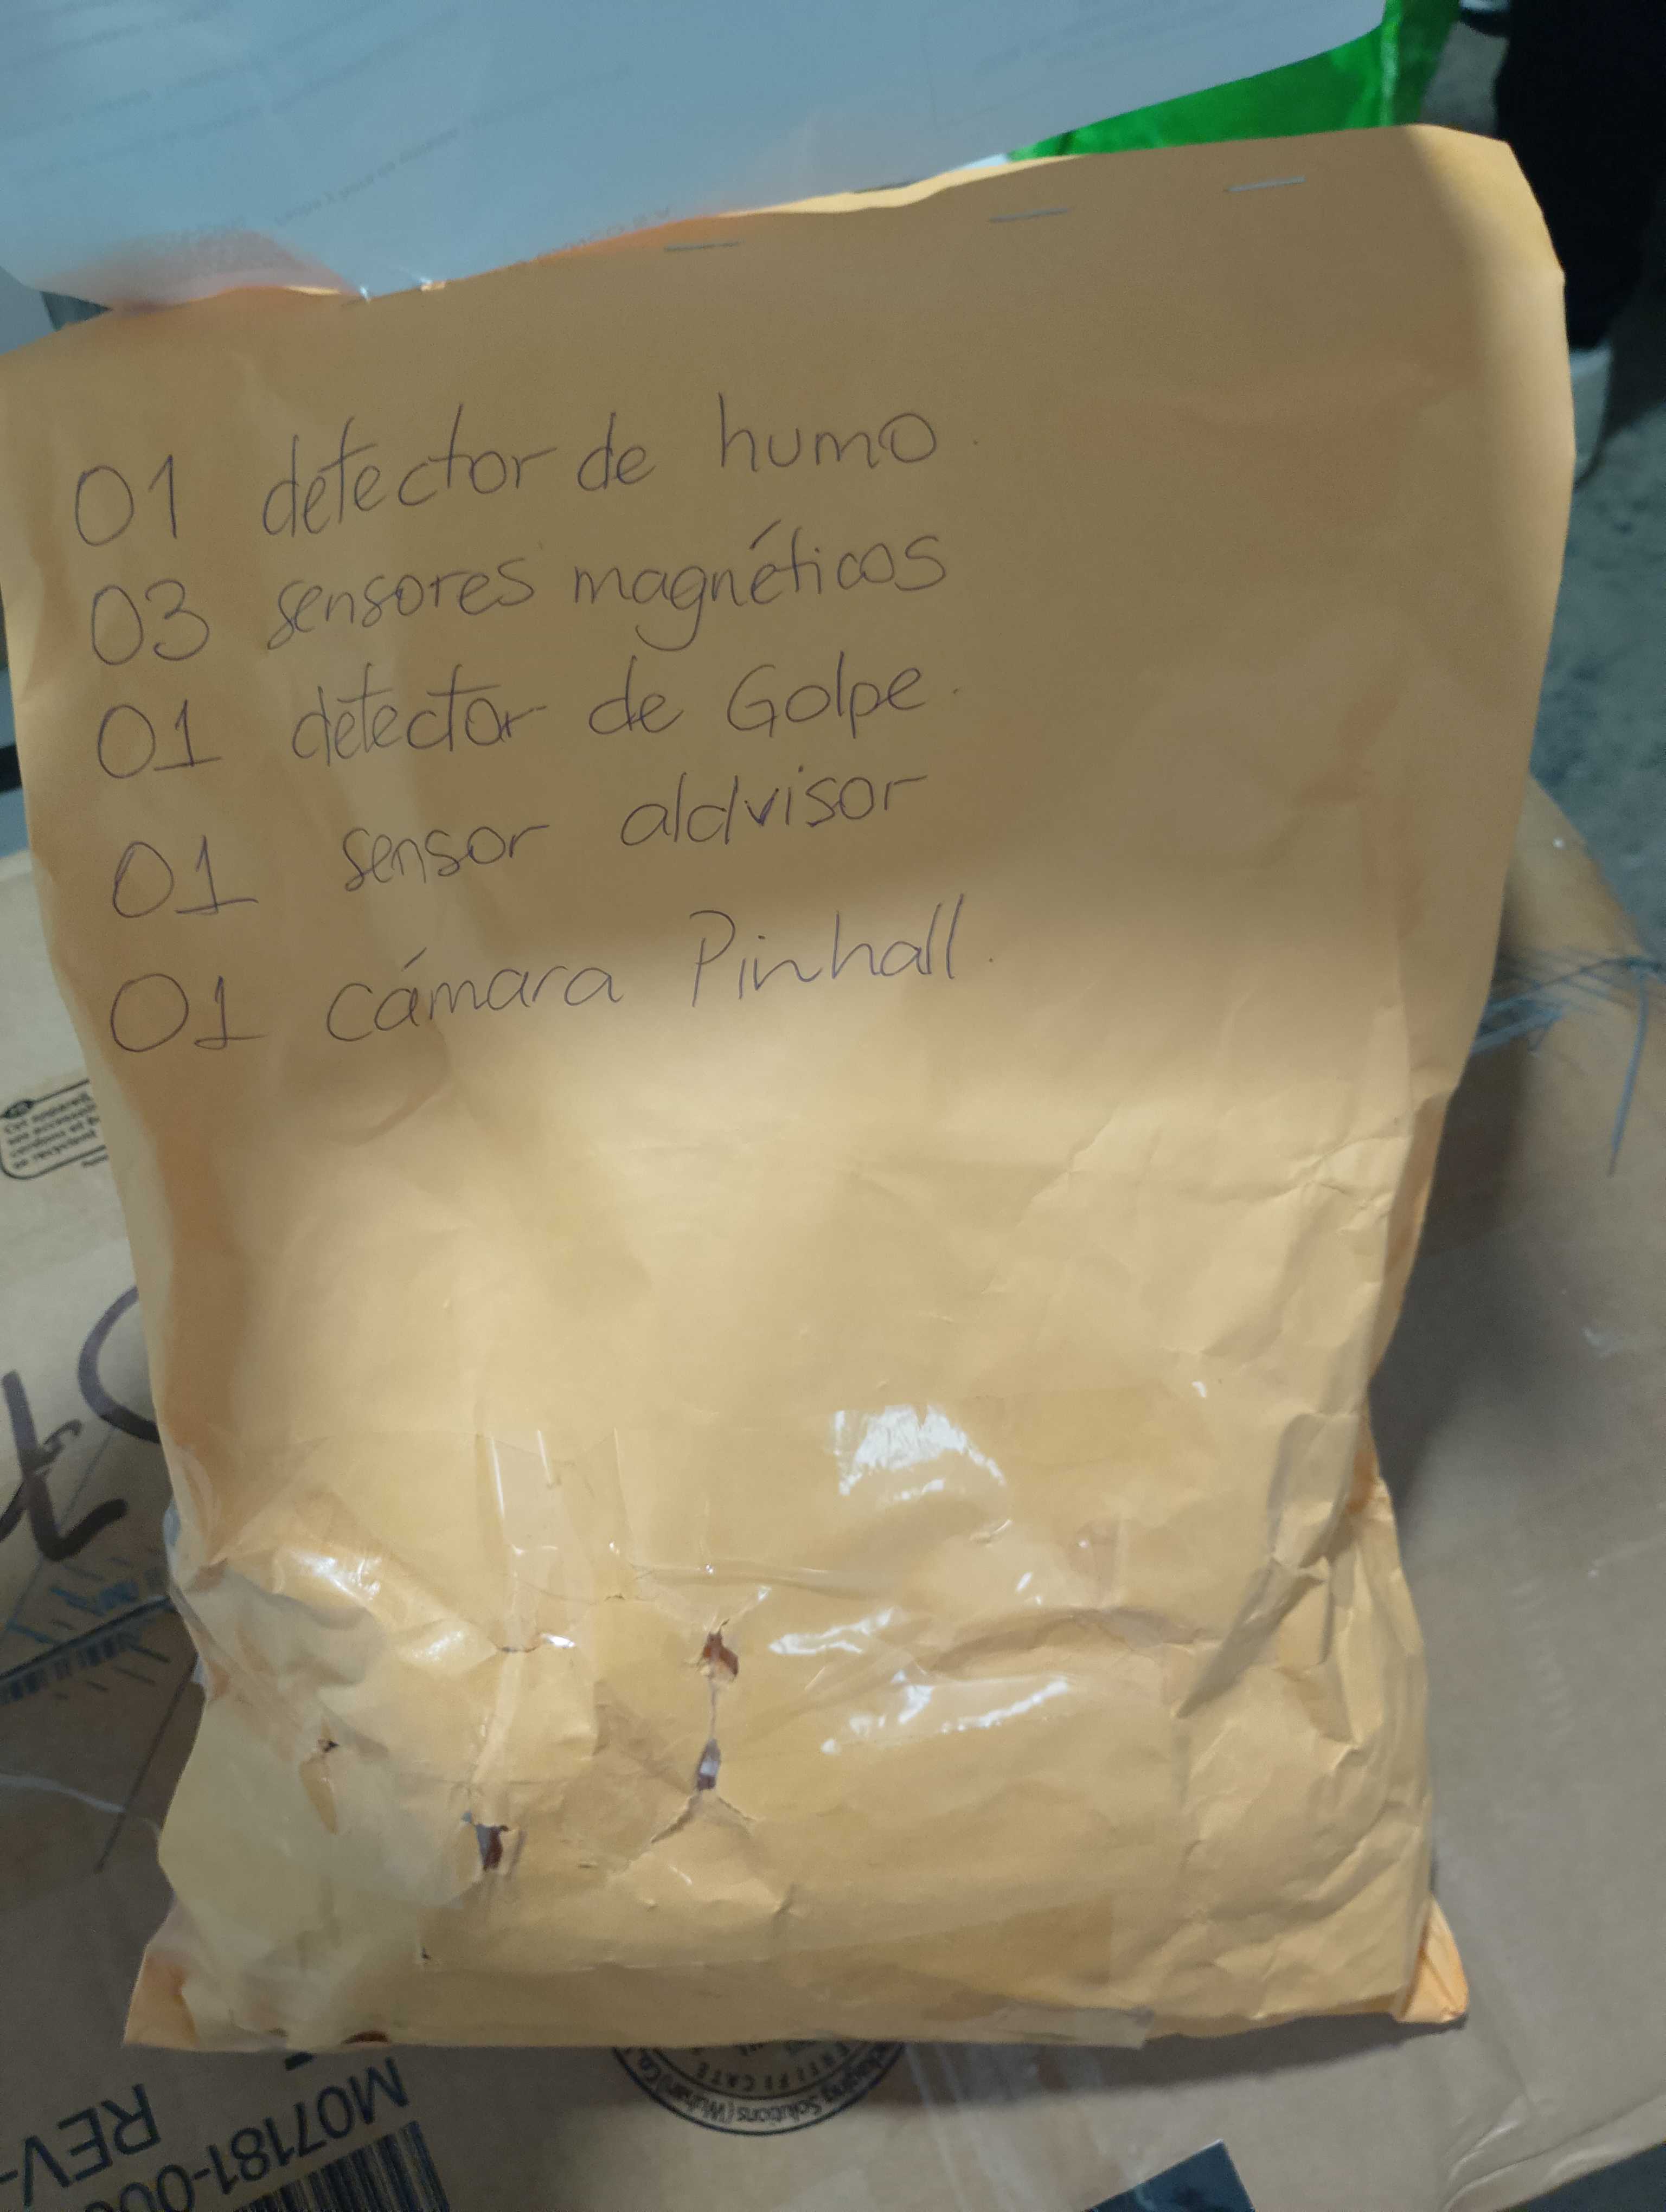 01 detector de humo.
03 sensores magnéticos
01 detector de Golpe.
01 sensor aldvisor
01 cámara Pinhall.
M07181-00
REV-